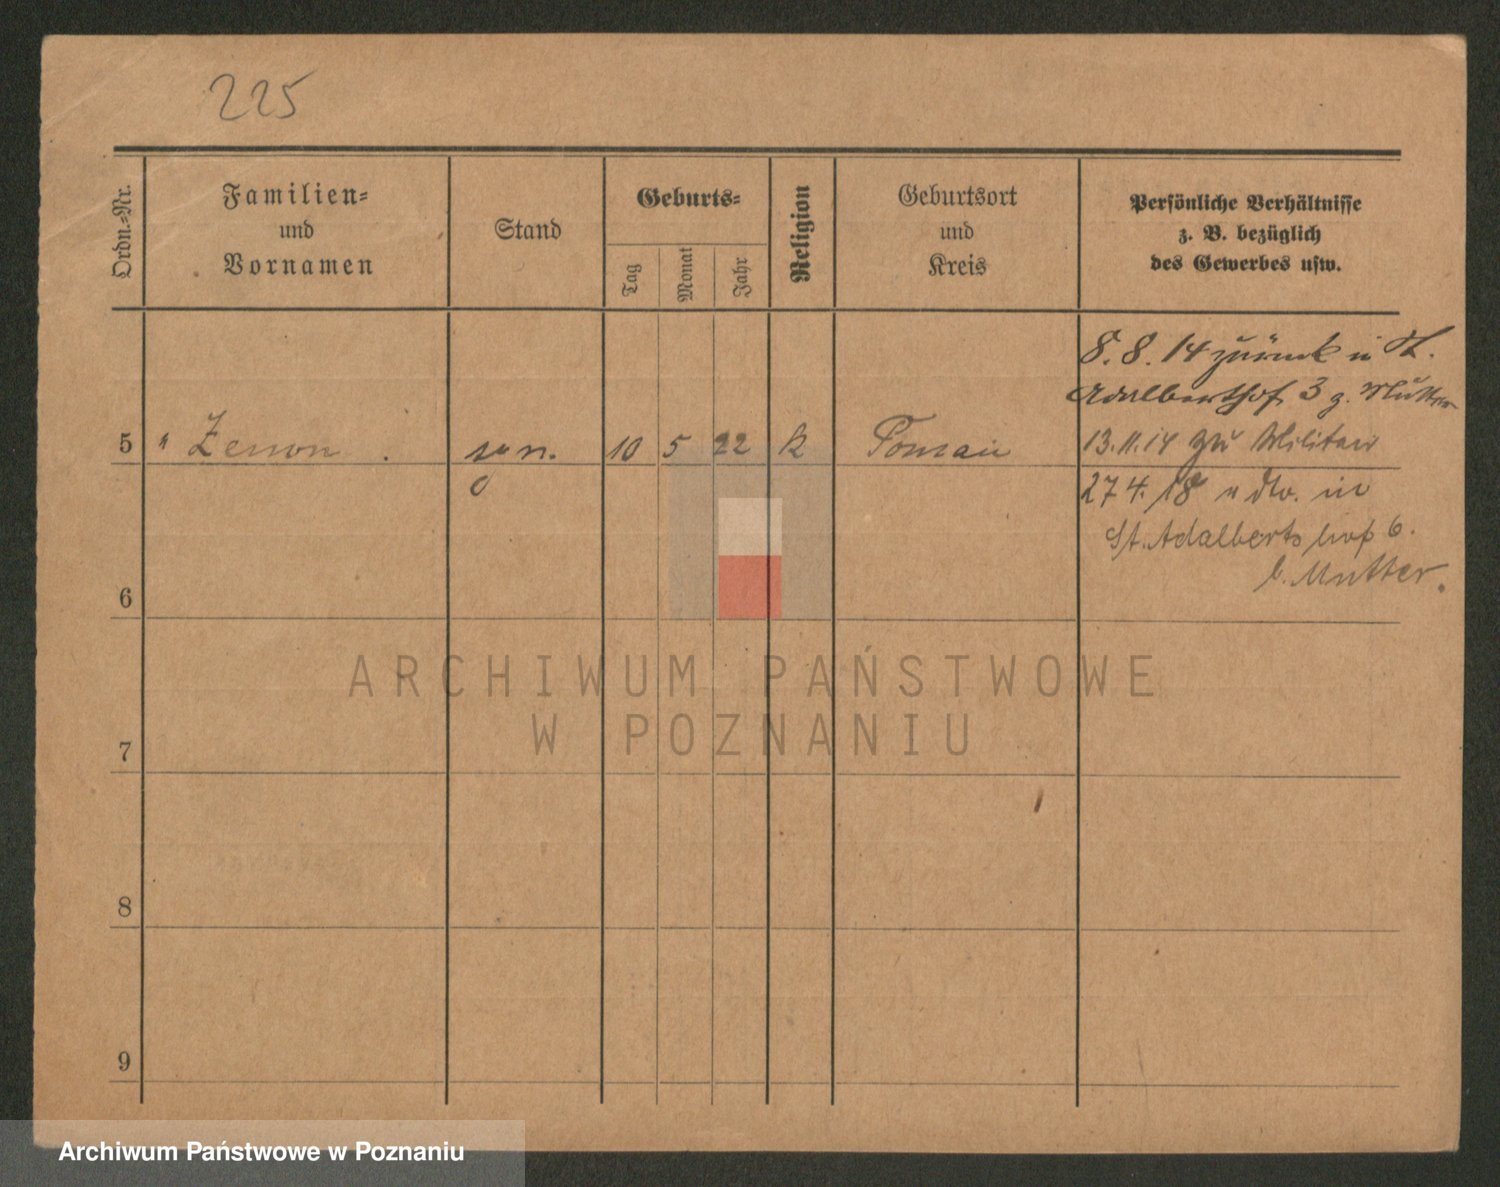 225
Ordn.-Nr.
Familien-
und
Vornamen
Stand
Geburts-
Tag
Monat
Jahr
Religion
Geburtsort
und
Kreis
Persönliche Verhältnisse
z. B. bezüglich
des Gewerbes usw.
8. 8. 14 zurück in St.
Adalberthof 3 z. Mutter
13. 11. 14 zu Militair
5 " Zenon syn. 10 5 22 k Poznań
27 4. 18 in
St. Adalberts hof 6.
b. Mutter.
6
ARCHIWUM PAŃSTWOWE
W POZNANIU
7
8
9
Archiwum Państwowe w Poznaniu